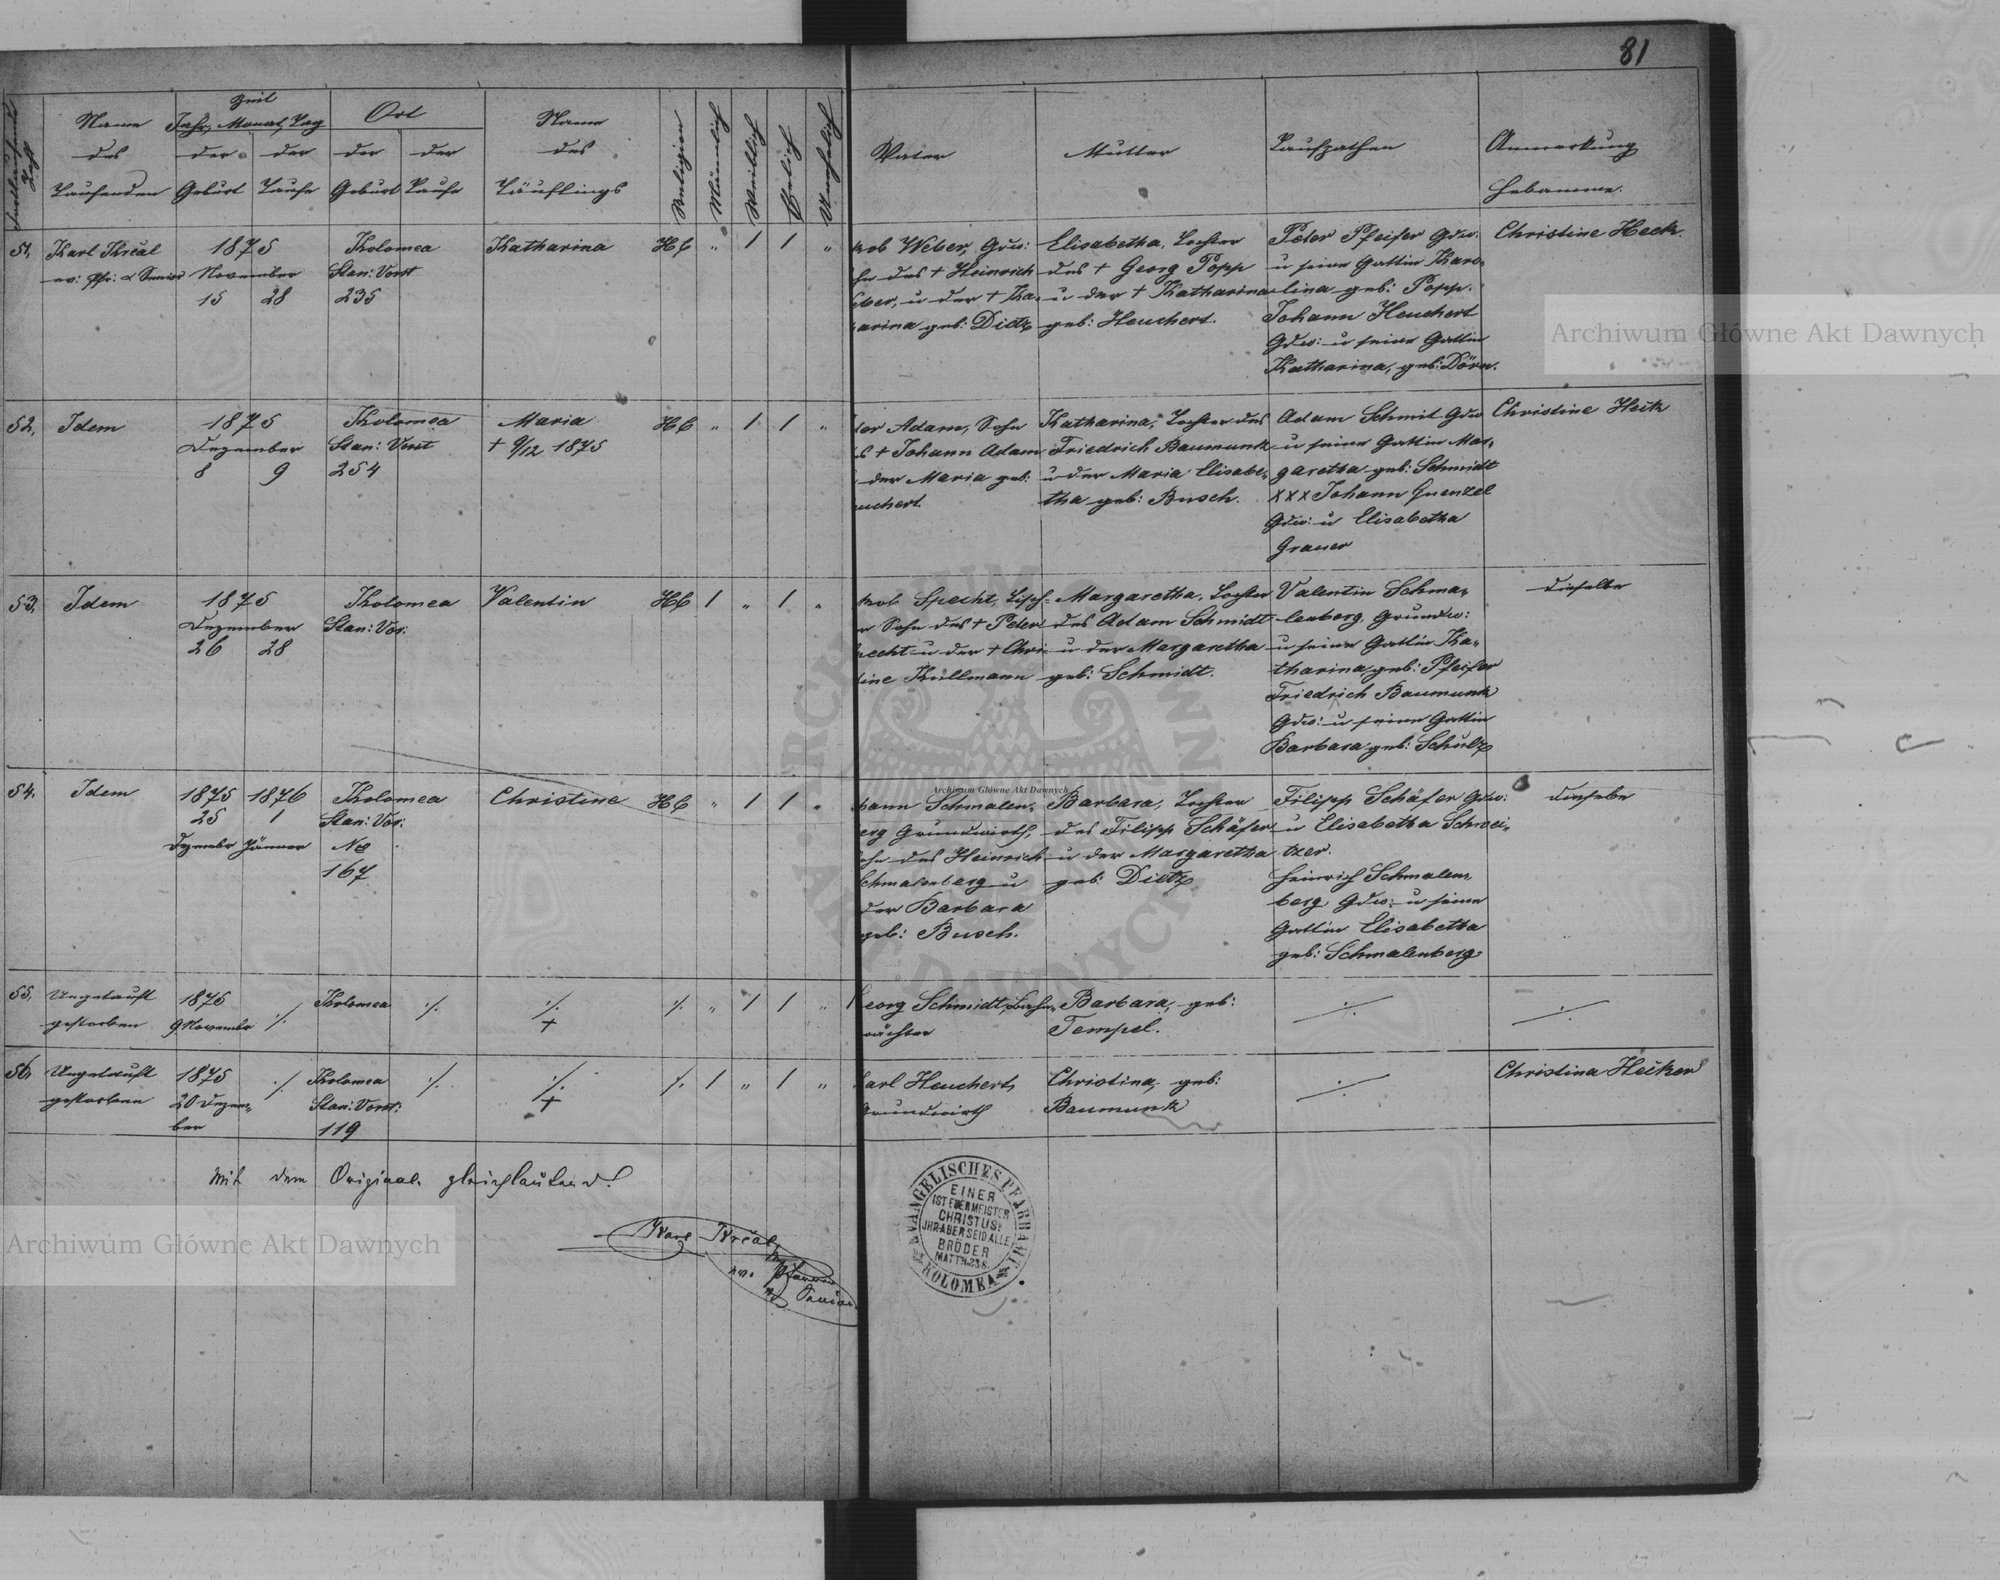 81
Fortlaufende Zahl
Name des Taufenden
Zeit
Jahr, Monat, Tag
der Geburt
der Taufe
Ort
der Geburt
der Taufe
Name des Täuflings
Religion
Männlich
Weiblich
Ehelich
Unehelich
Vater
Mutter
Taufpathen
Anmerkung
Hebamme.
51. Karl Králl
ev: Pfr: & Senior
1875
November
15 28
Kolomea
Stan: Vorst
235
Katharina
HC " 1 1 "
kob Weber, Gdw:
hn des + Heinrich
eber, u der + Ka-
arina geb: Dietz
Elisabetha, Tochter
des + Georg Popp
u der + Katharina
geb: Heuchert.
Peter Pfeifer Gdw:
u seine Gattin Karo-
lina geb: Popp.
Johann Heuchert
Gdw: u seine Gattin
Katharina, geb: Dörn.
Christine Heck.
52. Idem
1875
Dezember
8 9
Kolomea
Stan: Vorst
254
Maria
+ 9/12 1875
HC " 1 1 "
ter Adam, Sohn
s + Johann Adam
der Maria geb:
uchert.
Katharina, Tochter des
Friedrich Baumunk
u der Maria Elisabe-
tha geb: Busch.
Adam Schmit Gdw
u seine Gattin Mar-
garetha geb: Schmidt
XXX Johann Guenzel
Gdw: u Elisabetha
Grauer
Christine Heck
53. Idem
1875
Dezember
26 28
Kolomea
Stan: Vor:
Valentin
HC 1 " 1 "
kob Specht, Tisch-
r Sohn des + Peter
pecht u der + Chri-
tine Kullmann
Margaretha, Tochter
des Adam Schmidt
u der Margaretha
geb: Schmidt.
Valentin Schma-
lenberg, Grundw:
u seine Gattin Ka-
tharina geb: Pfeifer
Friedrich Baumunk
Gdw: u seine Gattin
Barbara geb: Schulz
dieselbe
54. Idem
1875 1876
25 1
Dezember Jänner
Kolomea
Stan: Vor:
No
167
Christine
HC " 1 1 "
hann Schmalen-
erg Grundwirth,
ohn des Heinrich
chmalenberg u
der Barbara
geb: Busch.
Barbara, Tochter
des Filipp Schäfer
u der Margaretha
geb. Dietz
Filipp Schäfer Gdw:
u Elisabetha Schwei-
tzer.
Heinrich Schmalen-
berg, Gdw: u seine
Gattin Elisabetha
geb: Schmalenberg
dieselbe
55. Ungetauft
gestorben
1875
9 November
./.
Kolomea
./.
./.
+
./. " 1 1 "
eorg Schmidt, Bahn-
wächter
Barbara, geb:
Tempel.
./.
./.
56. Ungetauft
gestorben
1875
20 Dezem-
ber
./.
Kolomea
Stan: Vorst:
119
./.
./.
+
./. 1 " 1 "
arl Heuchert,
Grundwirth
Christina, geb:
Baumunk
./.
Christina Hecker
Mit dem Original gleichlautend.
Karl Králl
ev. Pfarrer
Senior
EVANGELISCHES PFARRAMT
KOLOMEA
EINER
IST EUER MEISTER
CHRISTUS:
JHR ABER SEID ALLE
BRÖDER
MATTH. 23.8.
Archiwum Główne Akt Dawnych
Archiwum Główne Akt Dawnych
Archiwum Główne Akt Dawnych